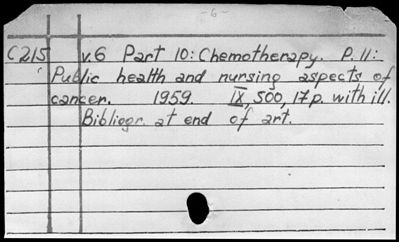 -6-
C215 v.6 Part 10: Chemotherapy. P.11:
Public health and nursing aspects of
cancer. 1959. IX, 500, 17 p. with ill.
Bibliogr. at end of art.